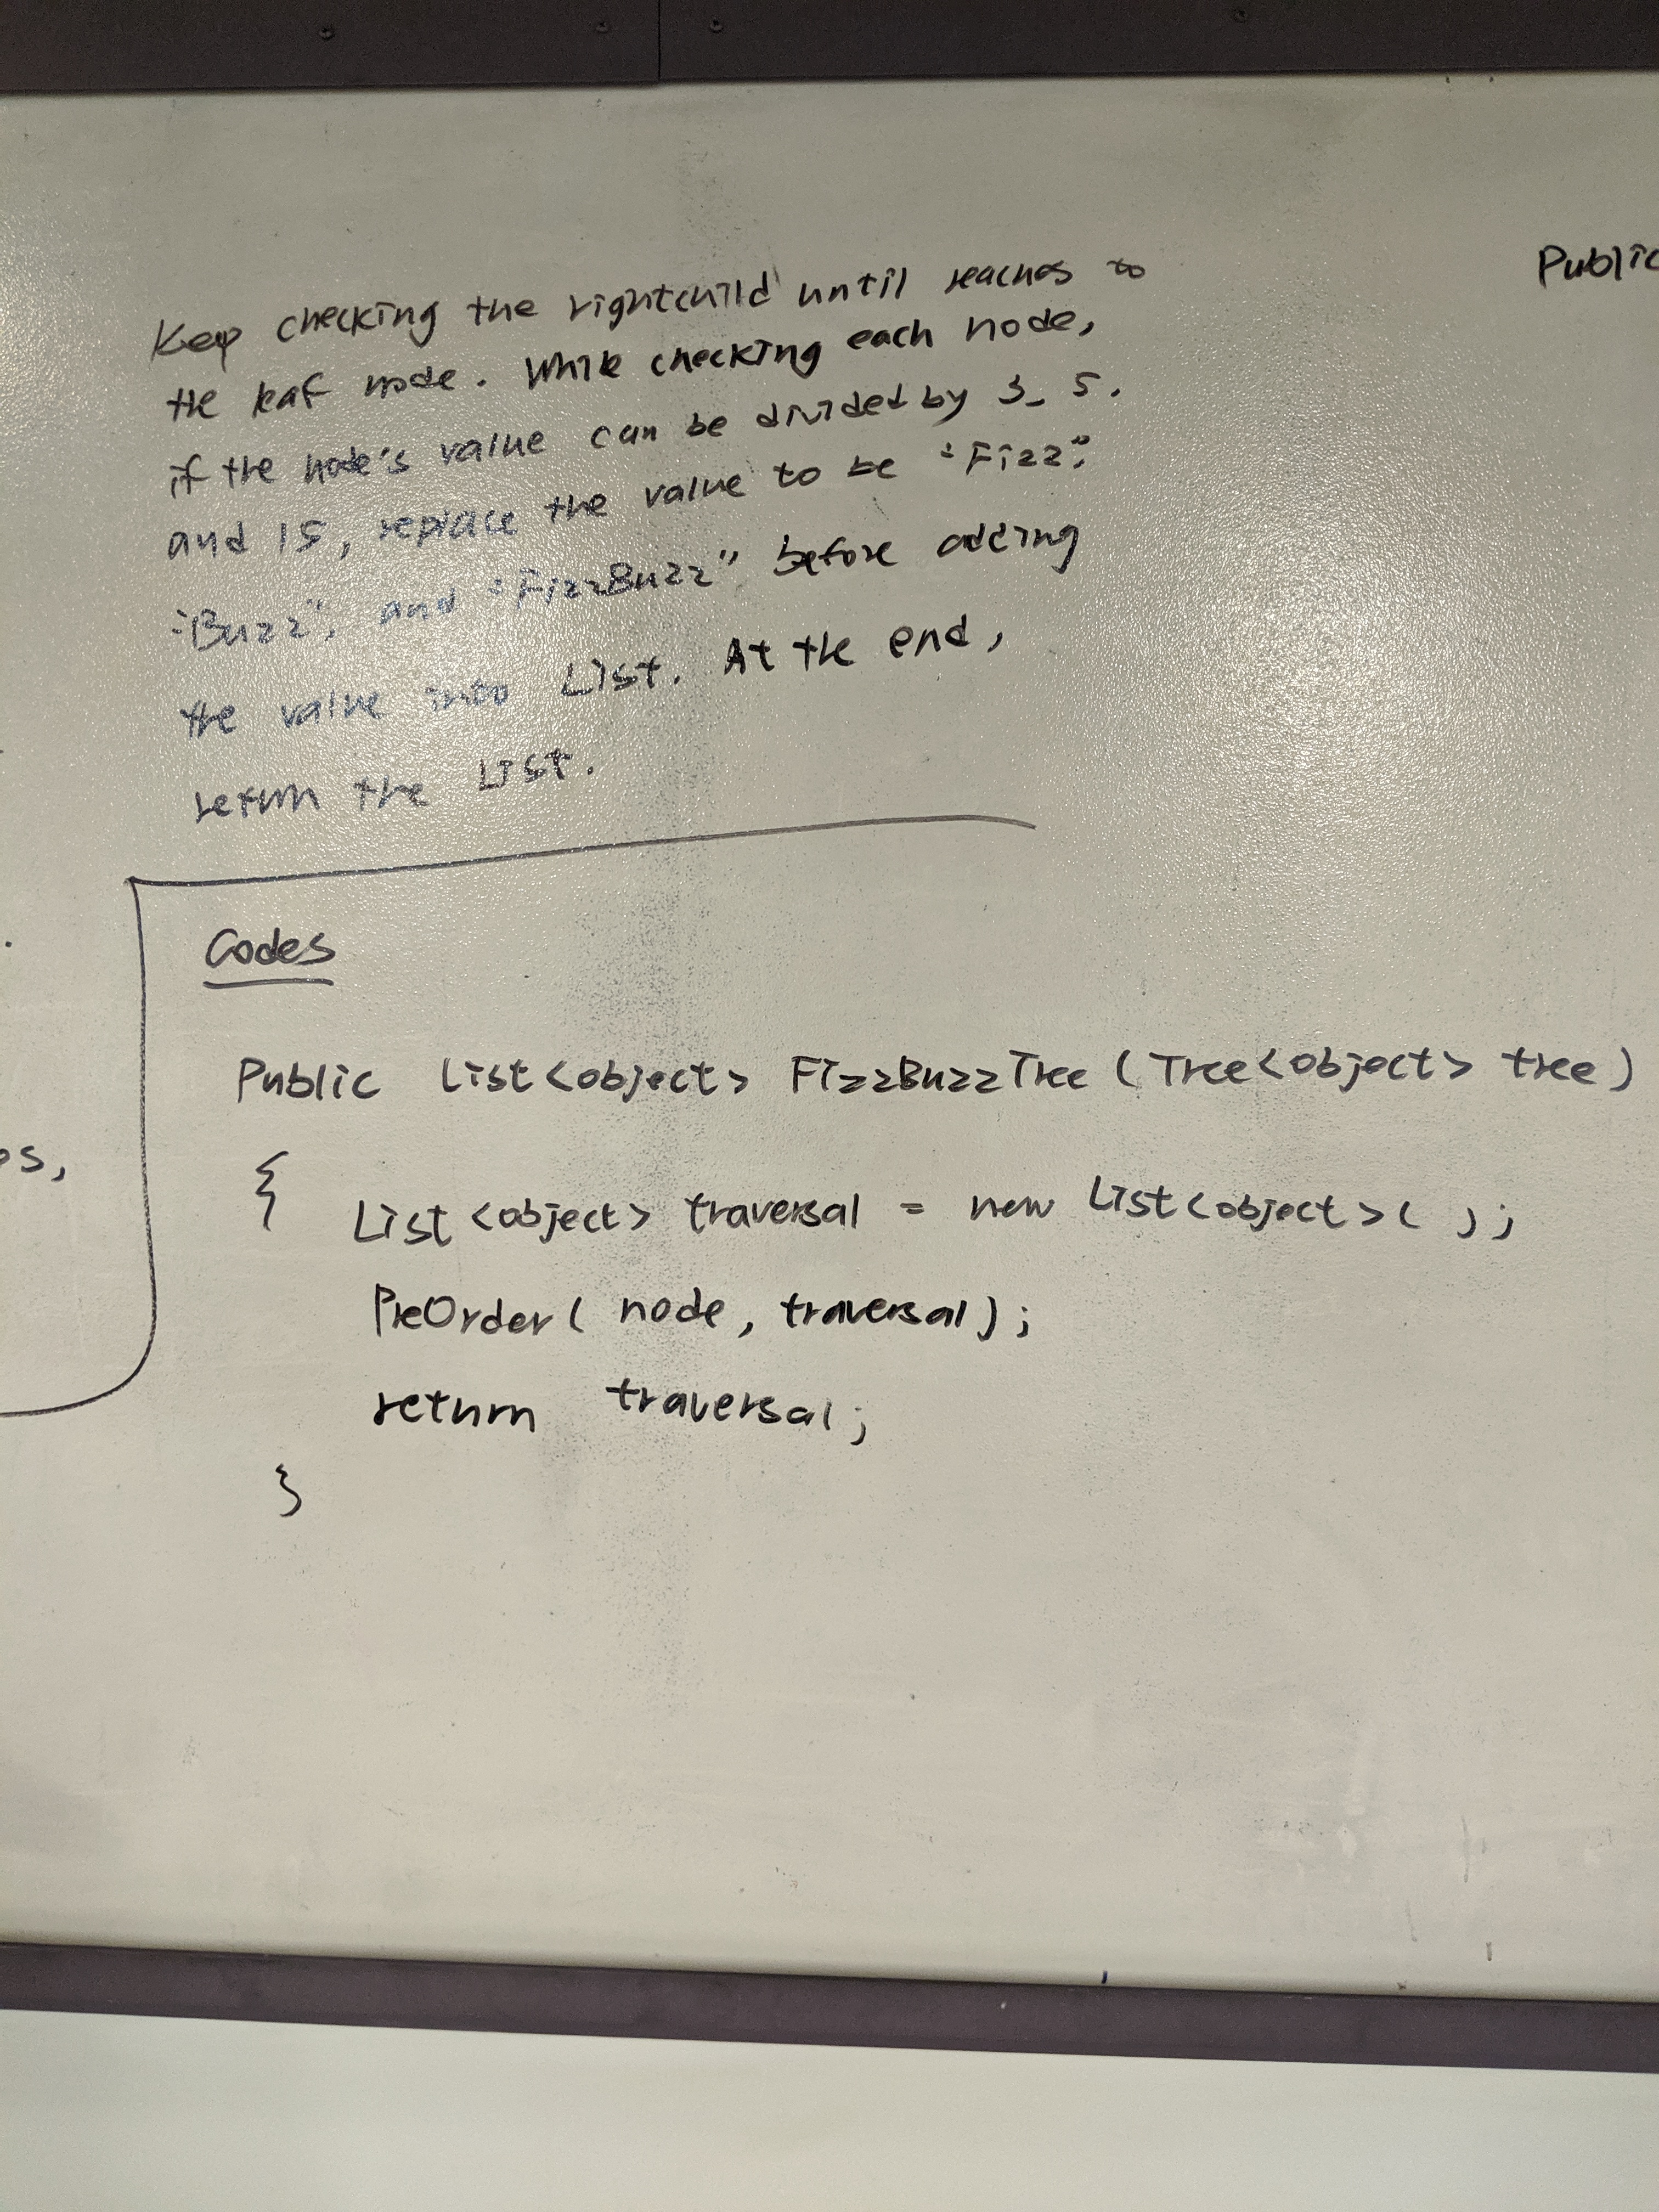 Keep checking the rightchild until reaches to
the leaf node. While checking each node,
if the node's value can be divided by 3, 5,
and 15, replace the value to be "Fizz",
"Buzz", and "FizzBuzz" before adding
the value into List. At the end,
return the List.
Public
Codes
Public List<object> FizzBuzzTree (Tree<object> tree)
{
List<object> traversal = new List<object>( );
PreOrder( node, traversal);
return traversal;
}